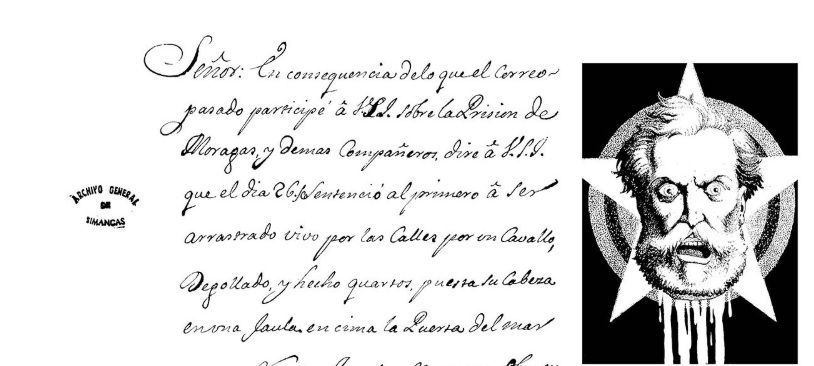 Señor: En consequencia delo que el Correo
pasado participé â V.S.I. sobre la Prision de
Moragas, y demas Compañeros, dire â V.S.I.
que el dia 26. se Sentenció al primero â ser
arrastrado vivo por las Calles por un Cavallo,
Degollado, y hecho quartos, puesta su Cabeza
en una Jaula en cima la Puerta del mar
ARCHIVO GENERAL
DE
SIMANCAS